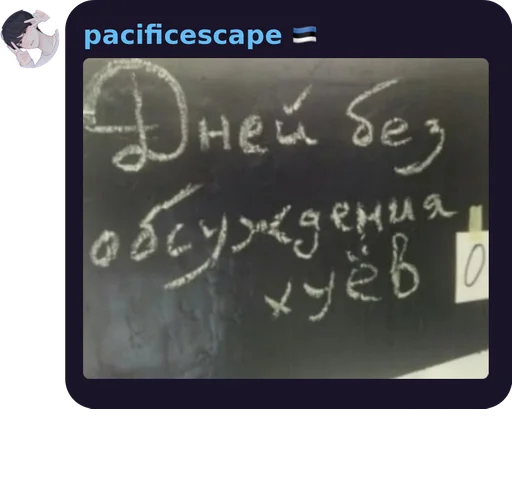 pacificescape 🇪🇪
Дней без
обсуждения
хуёв
0